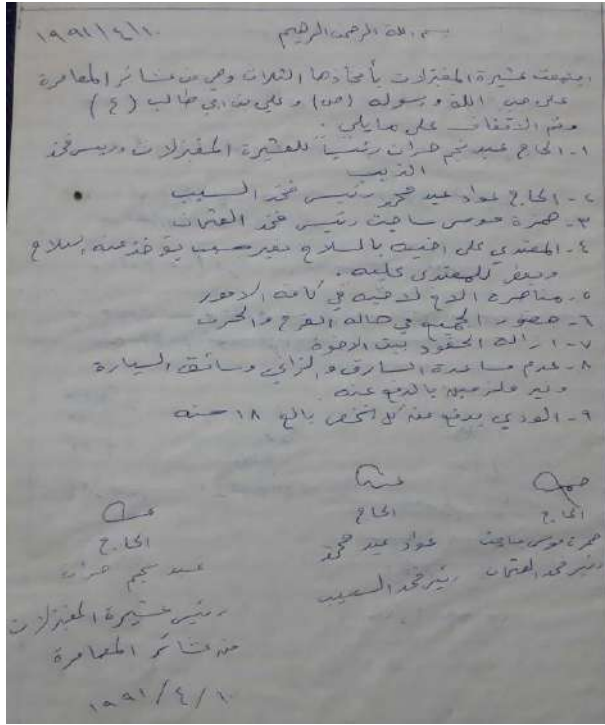 بسم الله الرحمن الرحيم ١٩٩١/٤/١٠
اجتمعت عشيرة المغيزلات بأفخاذها الثلاث وهي من عشائر المعامرة
على حب الله ورسوله (ص) وعلي بن ابي طالب (ع)
وتم الاتفاق على مايلي.
١- الحاج عبد نجم رئيساً للعشيرة المغيزلات ورئيس فخذ
الذيب
٢- الحاج عواد عبد محمد رئيس فخذ السبب
٣- حمزة موسى ساجت رئيس فخذ العثمان
٤- المعتدي على اخيه بالسلاح بغير سبب يؤخذ منه السلاح
ويعطى للمعتدى عليه.
٥- مناصرة الاخ لاخيه في كافة الامور
٦- حضور الجميع في حالة الفرح والحزن
٧- ازالة الحقود بين الاخوة
٨- عدم مساعدة السارق والزاني وسائق السيارة
وغير ملزمين بالدفع عنه
٩- الودي يدفع من كل شخص بالغ ١٨ سنه
الحاج الحاج الحاج
حمزة موسى ساجت عواد عبد محمد عبد نجم
رئيس فخذ العثمان رئيس فخذ السبب
رئيس عشيرة المغيزلات
من عشائر المعامرة
١٩٩١/٤/١٠